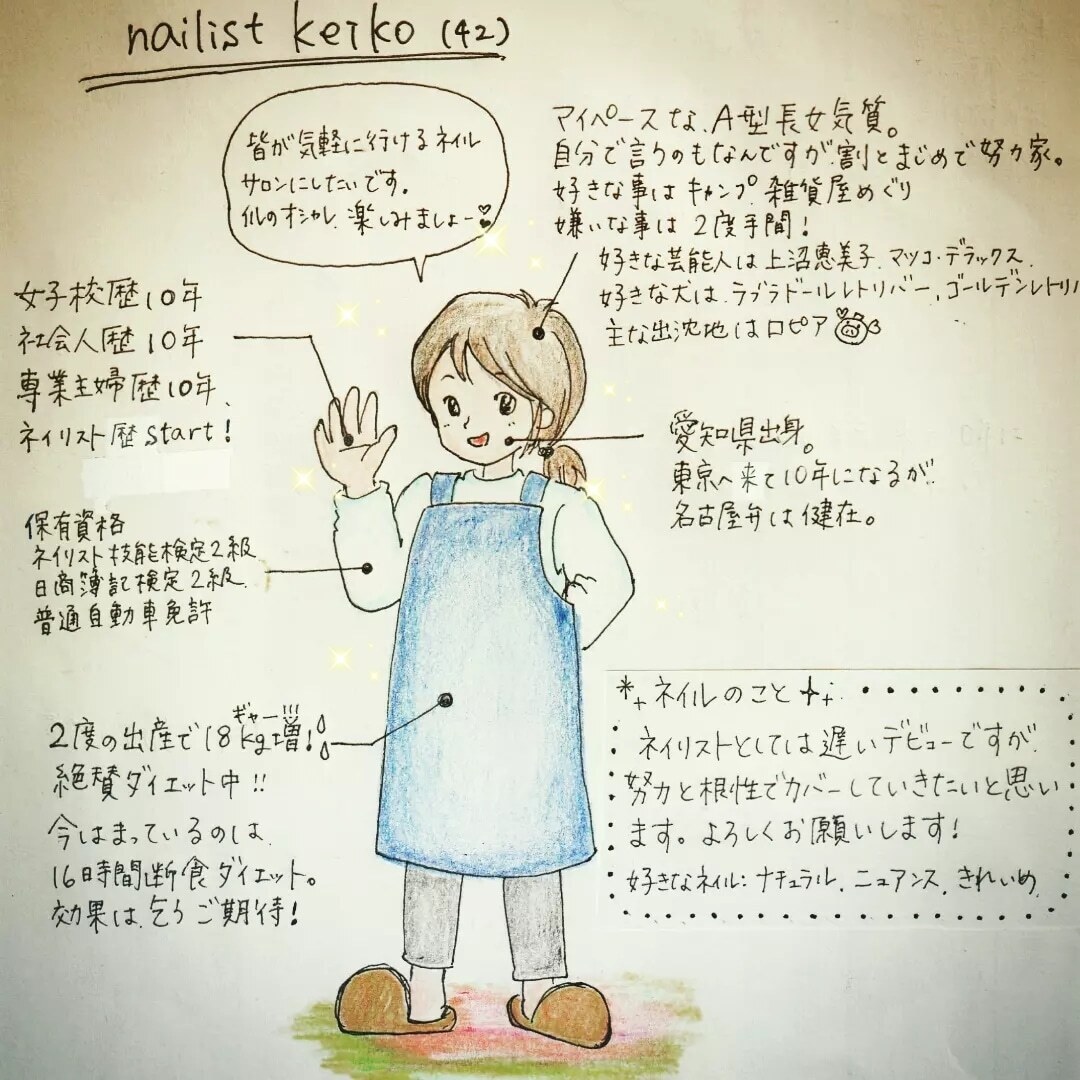 nailist keiko (42)
皆が気軽に行けるネイル
サロンにしたいです。
イルのオシャレ、楽しみましょー
マイペースな、A型長女気質。
自分で言うのもなんですが、割とまじめで努力家。
好きな事は キャンプ、雑貨屋めぐり
嫌いな事は 2度手間！
好きな芸能人は 上沼恵美子、マツコ・デラックス
好きな犬は、ラブラドールレトリバー、ゴールデンレトリバ
主な出沈地はロピア
女子校歴10年
社会人歴10年
専業主婦歴10年、
ネイリスト歴start！
愛知県出身。
東京へ来て10年になるが、
名古屋弁は健在。
保有資格
ネイリスト技能検定2級
日商簿記検定2級
普通自動車免許
ギャー!!!
2度の出産で18kg増！
絶賛ダイエット中!!
今はまっているのは、
16時間断食ダイエット。
効果は、乞うご期待！
*₊ネイルのこと
ネイリストとしては遅いデビューですが、
努力と根性でカバーしていきたいと思い
ます。よろしくお願いします！
好きなネイル：ナチュラル、ニュアンス、きれいめ